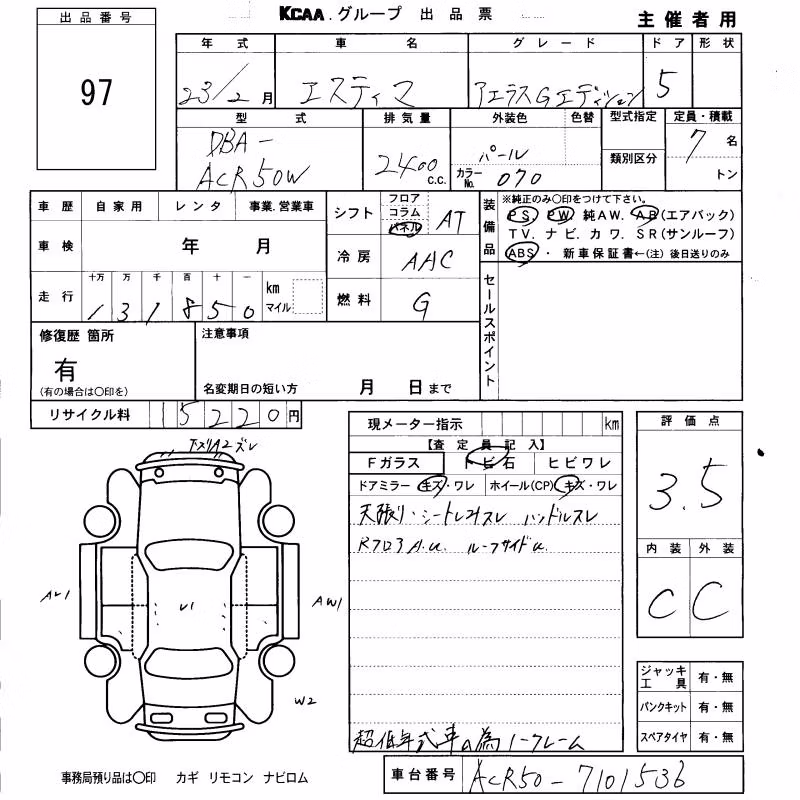 KCAA. グループ 出品票
主催者用
出品番号
97
年式 車名 グレード ドア 形状
23/2月 エスティマ アエラスGエディション 5
型式 排気量 外装色 色替 型式指定 定員・積載
DBA-ACR50W 2400 c.c. パール カラーNo. 070 類別区分 7名 トン
車歴 自家用 レンタ 事業.営業車
シフト フロア コラム パネル AT
装備品 ※純正のみ○印をつけて下さい。
PS. PW. 純AW. AB(エアバック)
TV. ナビ. カワ. SR(サンルーフ)
ABS ・ 新車保証書←(注) 後日送りのみ
車検 年 月
冷房 AAC
セールスポイント
走行 十万 万 千 百 十 一
131850 km マイル
燃料 G
修復歴 箇所
有
(有の場合は○印を)
注意事項
名変期日の短い方 月 日まで
リサイクル料 15220円
現メーター指示 km
【査定員記入】
Fガラス トビ石 ヒビワレ
ドアミラー キズ・ワレ ホイール(CP) キズ・ワレ
天張り・シートレスレ ハンドルスレ
Rフロア A.u. ルーフサイドu.
超低年式車の為ノークレーム
評価点
3.5
内装 外装
C C
A2ズレ
AU1
U1
AW1
W2
ジャッキ工具 有・無
パンクキット 有・無
スペアタイヤ 有・無
事務局預り品は○印 カギ リモコン ナビロム
車台番号 ACR50-7101536